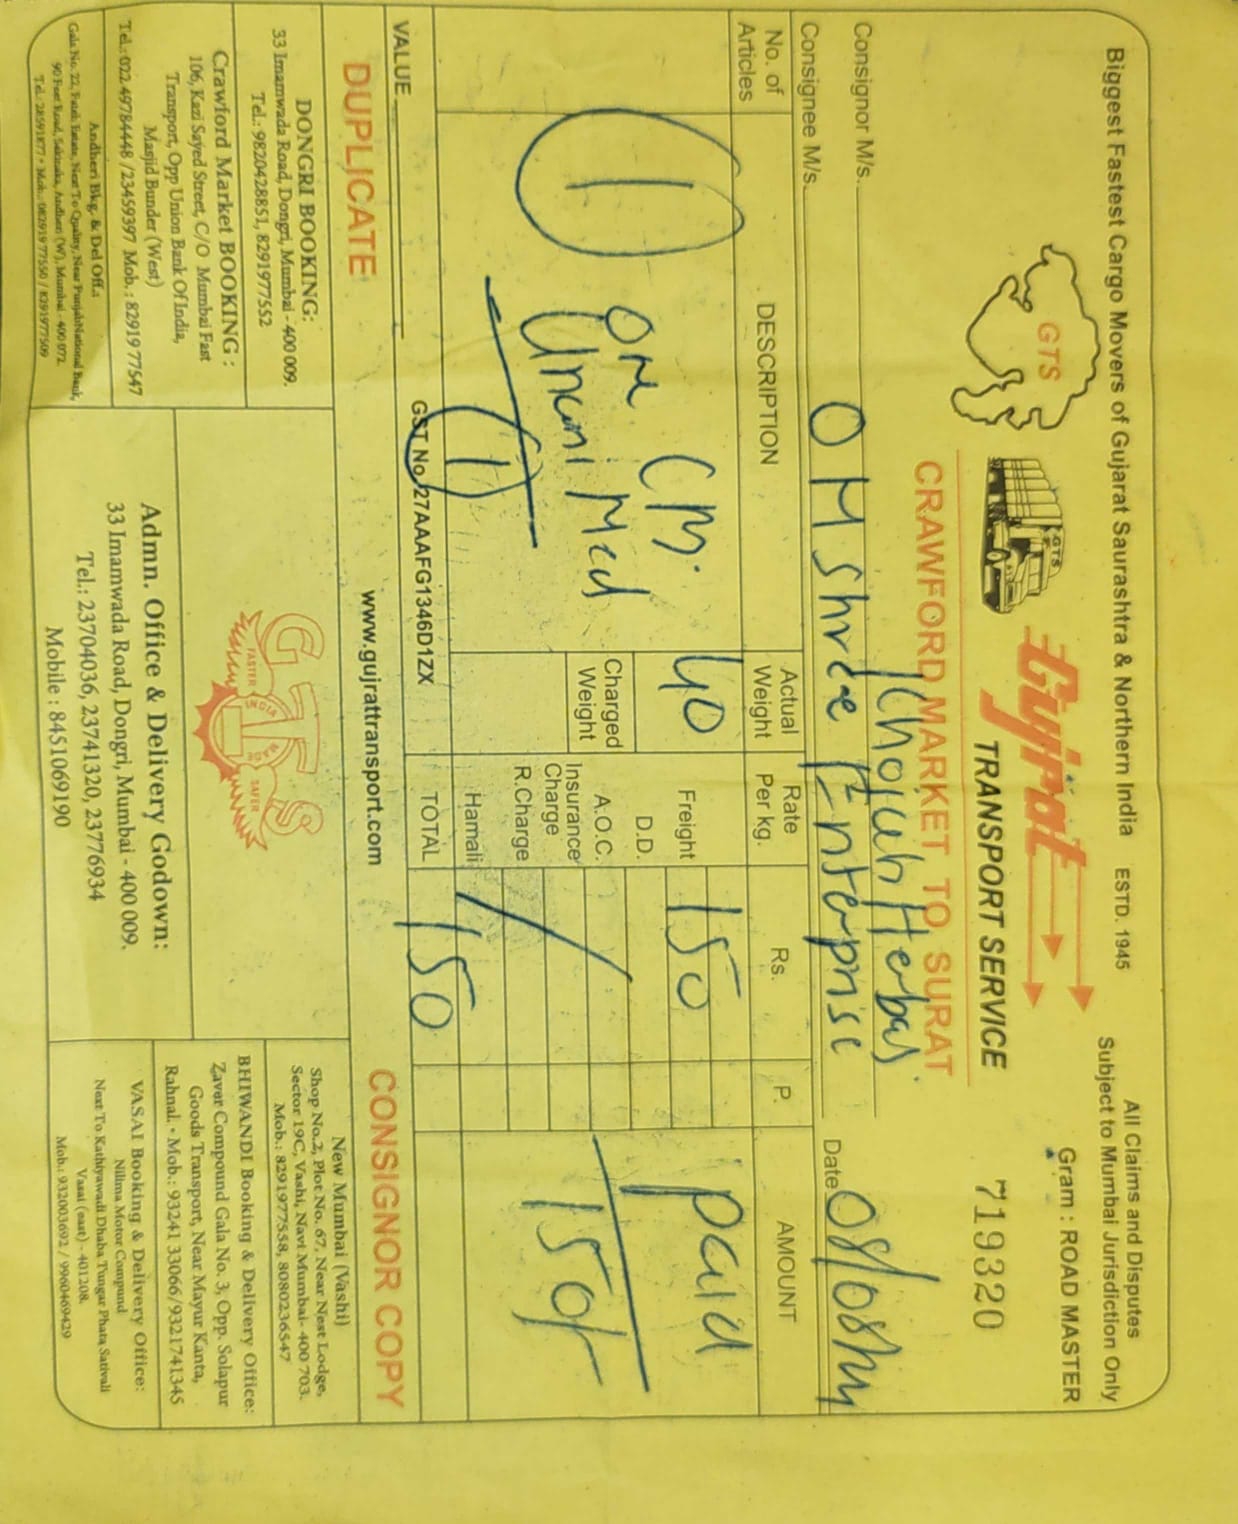 Biggest Fastest Cargo Movers of Gujarat Saurashtra & Northern India ESTD. 1945
All Claims and Disputes
Subject to Mumbai Jurisdiction Only
Gram : ROAD MASTER
GTS
GTS
Gujrat
TRANSPORT SERVICE
719320
CRAWFORD MARKET TO SURAT
Consignor M/s. Khojati Herbas
Consignee M/s. OM Shree Enterprise
Date
No. of Articles
DESCRIPTION
Actual Weight
Rate Per kg.
Rs.
P.
AMOUNT
1
One
Unani Med
40
Charged Weight
Freight 150
D.D.
A.O.C.
Insurance Charge
R.Charge
Hamali
TOTAL 150
Paid
150/-
1
VALUE
GST No. 27AAAFG1346D1ZX
DUPLICATE
www.gujrattransport.com
CONSIGNOR COPY
DONGRI BOOKING:
33 Imamwada Road, Dongri, Mumbai - 400 009.
Tel.: 9820428851, 8291977552
Crawford Market BOOKING :
106, Kazi Sayed Street, C/O Mumbai Fast
Transport, Opp Union Bank Of India,
Masjid Bunder (West)
Tel.: 022 49784448 /23459397 Mob. : 82919 77547
Andheri Bkg. & Del Off.:
Gala No. 22, Patel Estate, Next To Quality, Near Punjab National Bank,
90 Feet Road, Sakinaka, Andheri (W), Mumbai - 400 072.
Tel.: 28591877 • Mob.: 082919 77550 / 8291977509
GTS
FASTER
INDIA
SAFER
Admn. Office & Delivery Godown:
33 Imamwada Road, Dongri, Mumbai - 400 009.
Tel.: 23704036, 23741320, 23776934
Mobile : 8451069190
New Mumbai (Vashi)
Shop No.2, Plot No. 67, Near Nest Lodge,
Sector 19C, Vashi, Navi Mumbai- 400 703.
Mob.: 8291977558, 8080236547
BHIWANDI Booking & Delivery Office:
Zaver Compound Gala No. 3, Opp. Solapur
Goods Transport, Near Mayur Kanta,
Rahnal. • Mob.: 93241 33066/9321741345
VASAI Booking & Delivery Office:
Nilima Motor Compund
Next To Kathiyawadi Dhaba Tungar Phata Sativali
Vasai (east) - 401208.
Mob.: 932003692 / 9960469429